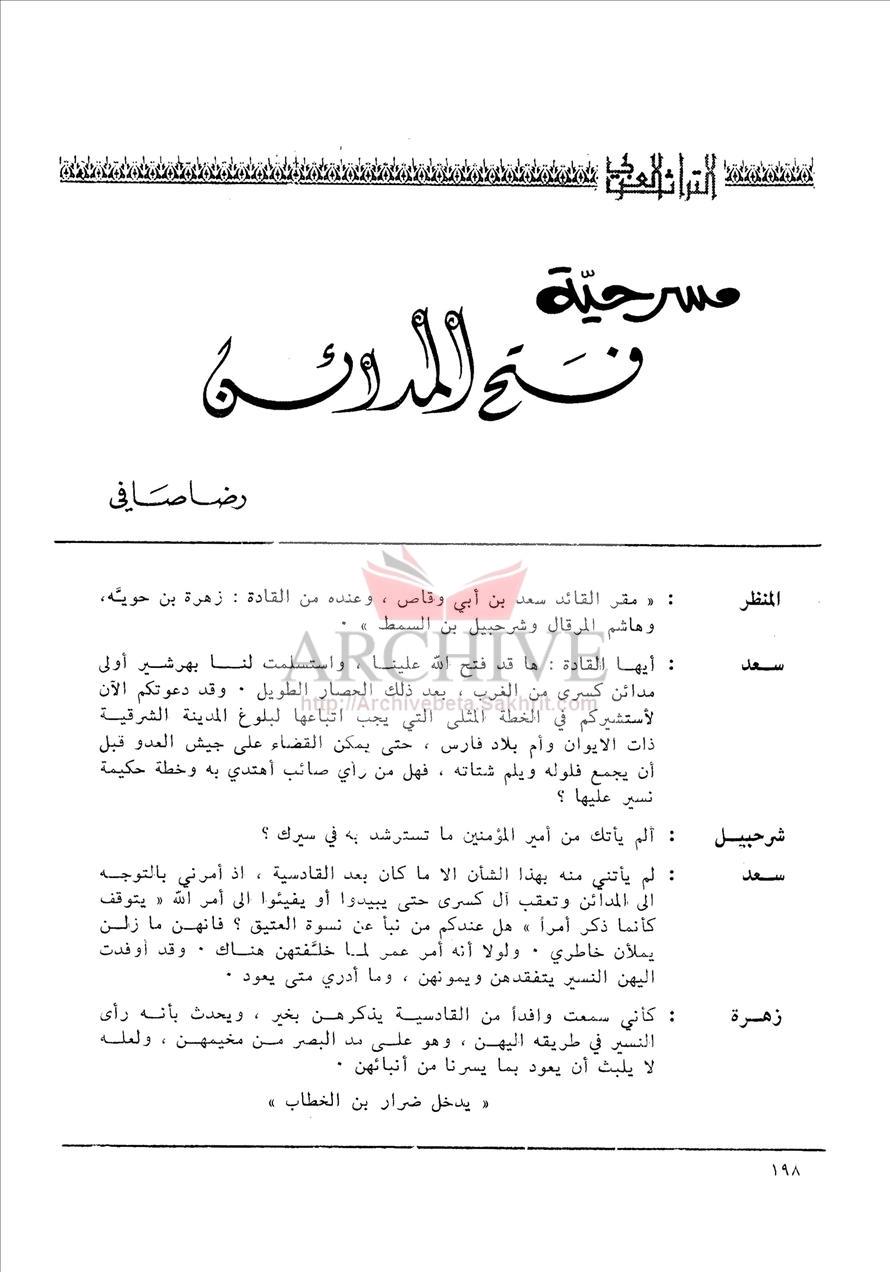 التراث العربي
مسرحيّة
فتح المدائن
رضا صافي
المنظر : « مقر القائد سعد بن أبي وقاص ، وعنده من القادة : زهرة بن حويَّه،
وهاشم المرقال وشرحبيل بن السمط » ٠
ARCHIVE
http://Archivebeta.Sakhrit.com
سعد : أيها القادة : ها قد فتح الله علينا ، واستسلمت لنا بهرشير أولى
مدائن كسرى من الغرب ، بعد ذلك الحصار الطويل ٠ وقد دعوتكم الآن
لأستشيركم في الخطة المثلى التي يجب اتباعها لبلوغ المدينة الشرقية
ذات الايوان وأم بلاد فارس ، حتى يمكن القضاء على جيش العدو قبل
أن يجمع فلوله ويلم شتاته ، فهل من رأي صائب أهتدي به وخطة حكيمة
نسير عليها ؟
شرحبيل : ألم يأتك من أمير المؤمنين ما تسترشد به في سيرك ؟
سعد : لم يأتني منه بهذا الشأن الا ما كان بعد القادسية ، اذ أمرني بالتوجه
الى المدائن وتعقب آل كسرى حتى يبيدوا أو يفيئوا الى أمر الله « يتوقف
كأنما ذكر أمراً » هل عندكم من نبأ عن نسوة العتيق ؟ فانهن ما زلن
يملأن خاطري ٠ ولولا أنه أمر عمر لما خلَّفتهن هناك ٠ وقد أوفدت
اليهن النسير يتفقدهن ويمونهن ، وما أدري متى يعود ٠
زهرة : كأني سمعت وافداً من القادسية يذكرهن بخير ، ويحدث بأنه رأى
النسير في طريقه اليهن ، وهو على مد البصر من مخيمهن ، ولعله
لا يلبث أن يعود بما يسرنا من أنبائهن ٠
« يدخل ضرار بن الخطاب »
١٩٨